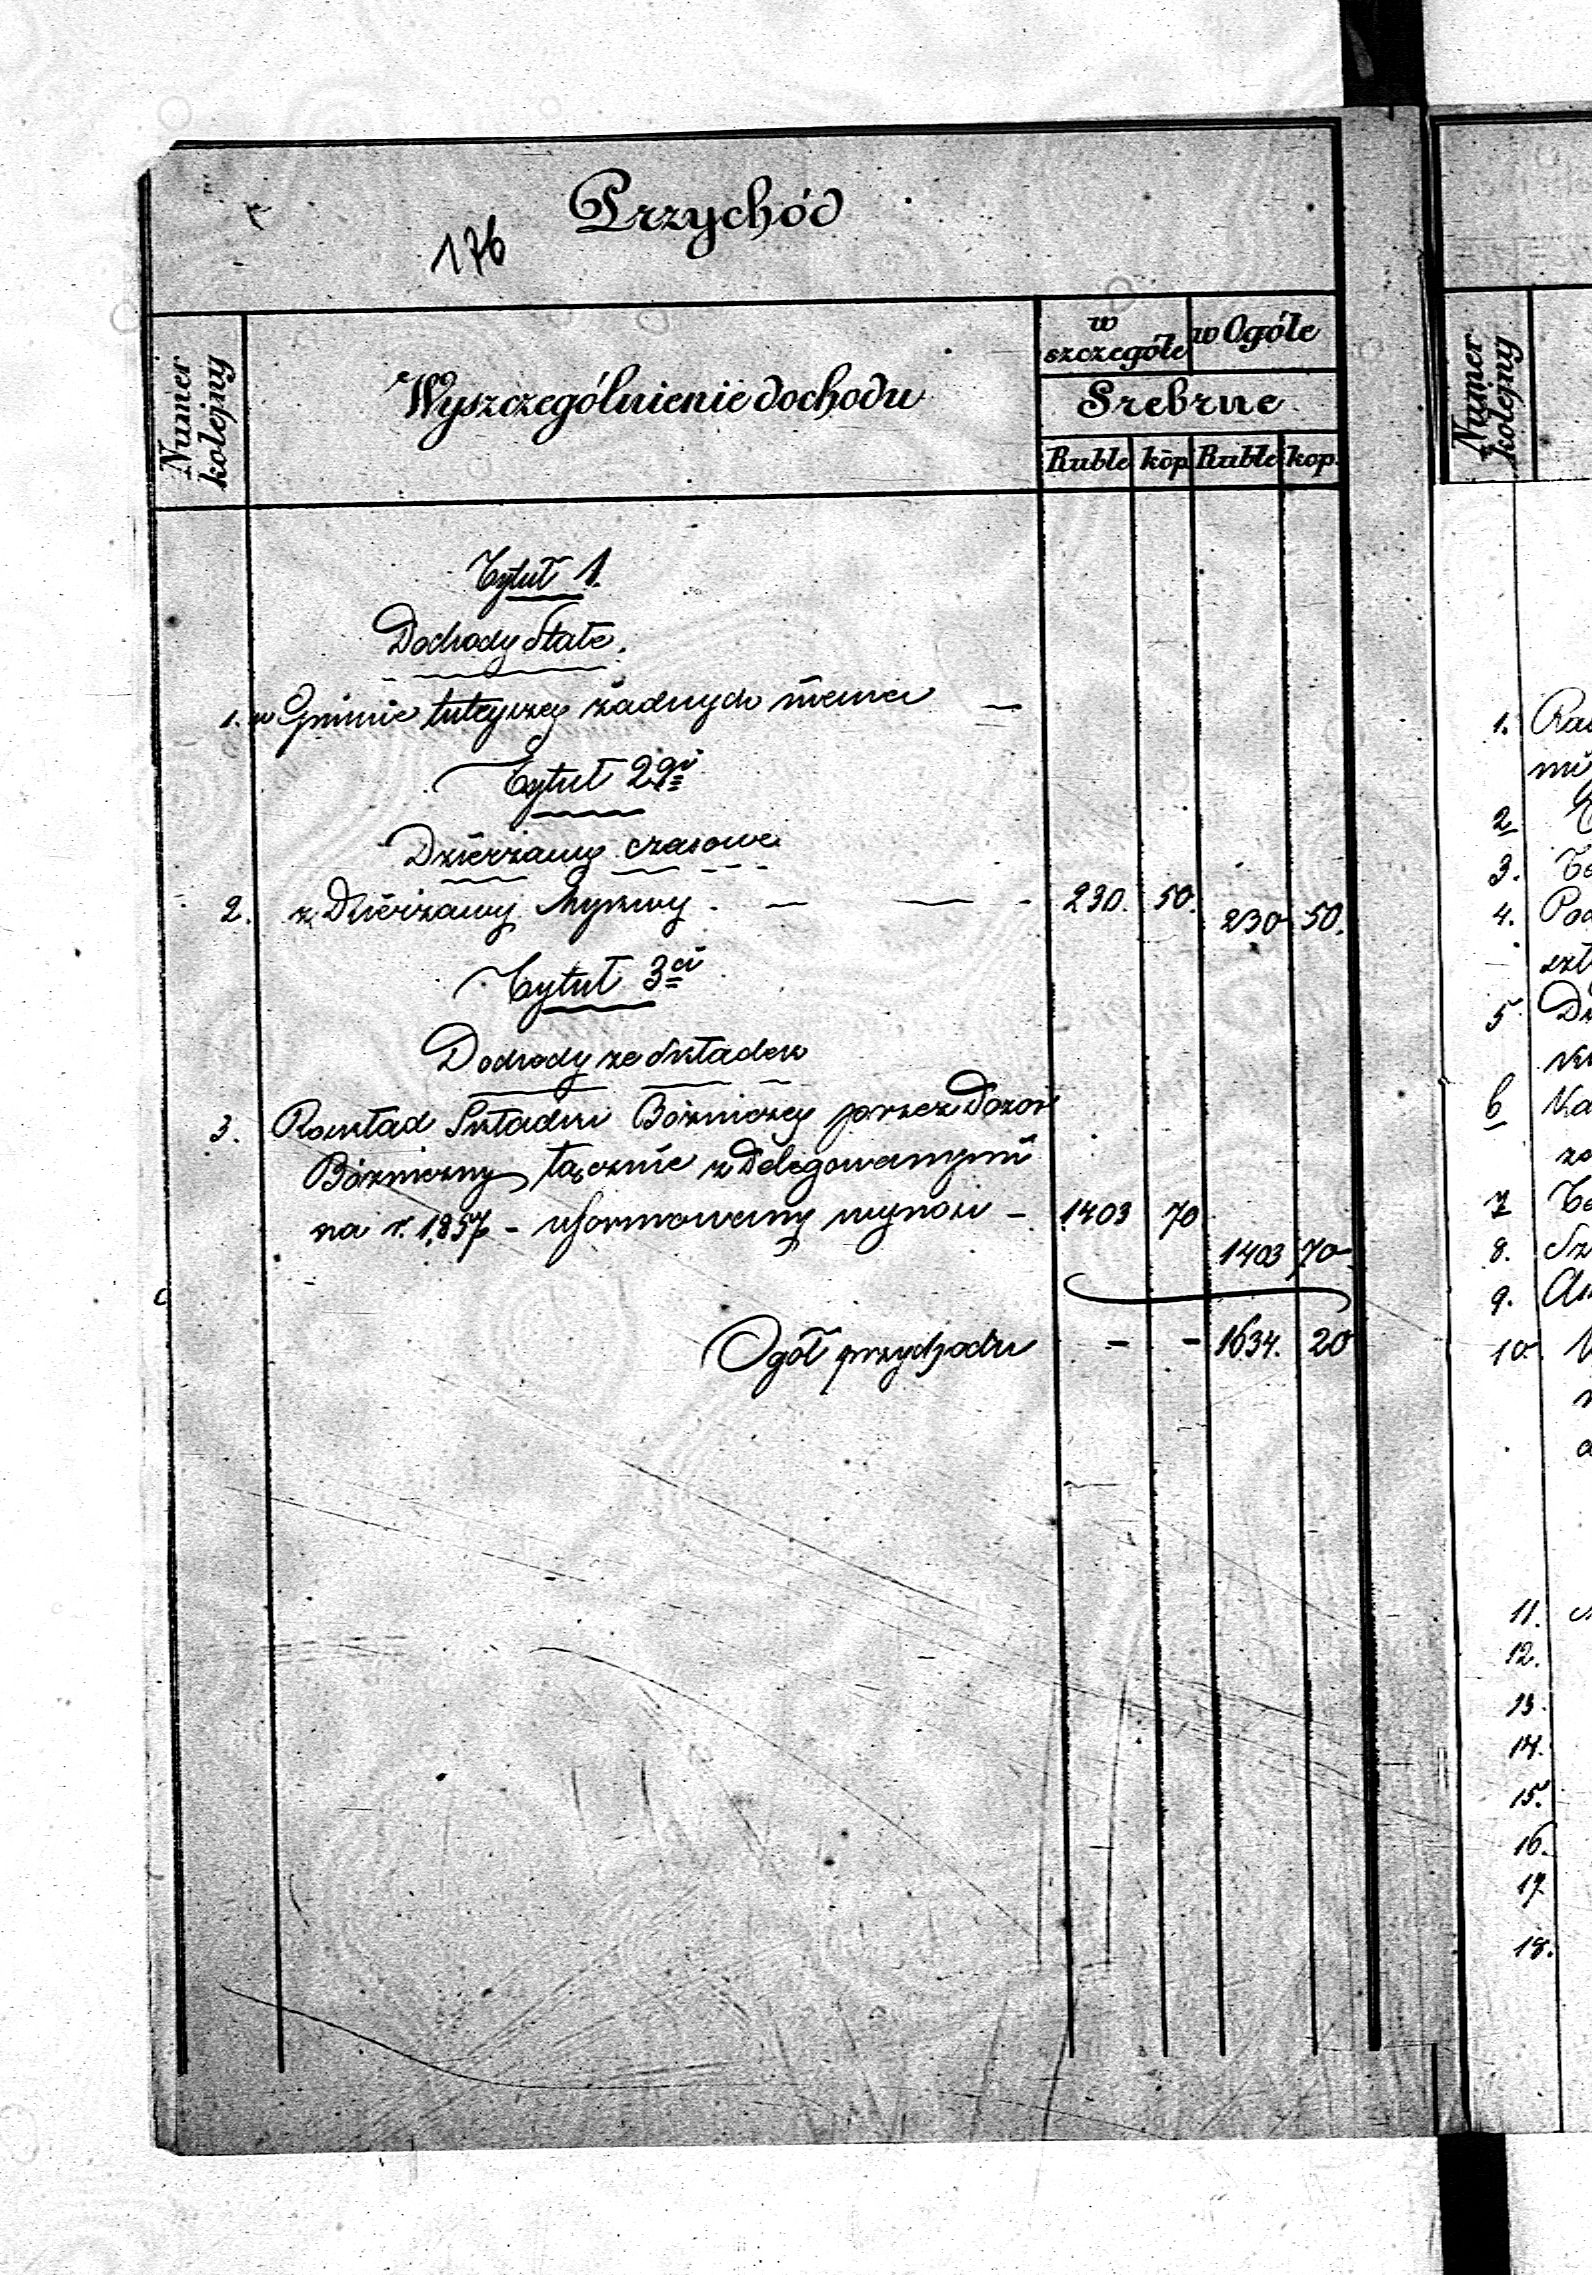 Przychód
176
Numer kolejny
Wyszczególnienie dochodu
w szczególe
w Ogóle
Srebrne
Ruble kop. Ruble kop.
Tytuł 1.
Dochody Stałe.
1. w Gminie tuteyszey żadnych niema —
Tytuł 2gi
Dzierżawy czasowe
2. z Dzierżawy Mykwy. — — - 230. 50. 230 50.
Tytuł 3ci
Dochody ze Składek
3. Rozkład Składki Bóżniczey przez Dozór
Bóżniczny łącznie z Delegowanymi
na r. 1857 - uformowany wynosi - 1403 70
1403 70
Ogół przychodu - - 1634. 20
Numer kolejny
1.
2
3.
4.
5
6
7
8.
9.
10.
11.
12.
13.
14.
15.
16.
17
18.